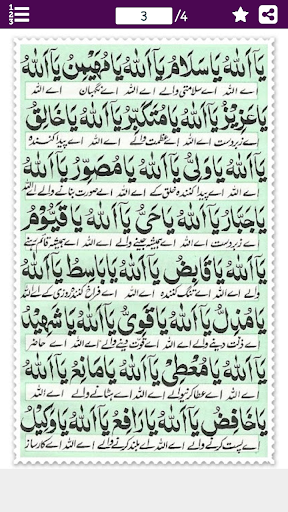 3 /4
یَآ اَللهُ یَا سَلَامُ یَآ اَللهُ یَا مُهَیْمِنُ یَآ اَللهُ
اے اللہ اے سلامتی والے اے اللہ اے نگہبان اے اللہ
یَا عَزِیْزُ یَآ اَللهُ یَا مُتَكَبِّرُ یَآ اَللهُ یَا خَالِقُ
اے زبردست اے اللہ اے عظمت والے اے اللہ اے پیدا کنندہ
یَآ اَللهُ یَا وَلِیُّ یَآ اَللهُ یَا مُصَوِّرُ یَآ اَللهُ
اے اللہ اے پیدا کنندہ خلق کے اے اللہ اے صورت بنانے والے اے اللہ
یَا جَبَّارُ یَآ اَللهُ یَا حَیُّ یَآ اَللهُ یَا قَیُّوْمُ
اے زبردست اے اللہ اے ہمیشہ جینے والے اے اللہ اے ہمیشہ قائم رہنے
یَآ اَللهُ یَا قَابِضُ یَآ اَللهُ یَا بَاسِطُ یَآ اَللهُ
والے اے اللہ اے تنگ کنندہ اے اللہ اے فراخ کنندہ روزی کے اے اللہ
یَا مُذِلُّ یَآ اَللهُ یَا قَوِیُّ یَآ اَللهُ یَا شَهِیْدُ
اے ذلت دینے والے اے اللہ اے قوت دینے والے اے اللہ اے حاضر
یَآ اَللهُ یَا مُعْطِیُ یَآ اَللهُ یَا مَانِعُ یَآ اَللهُ
اے اللہ اے عطا کرنیوالے اے اللہ اے ہٹانے والے اے اللہ
یَا خَافِضُ یَآ اَللهُ یَا رَافِعُ یَآ اَللهُ یَا وَكِیْلُ
اے پست کرنے والے اے اللہ اے بلند کرنے والے اے اللہ اے کارساز